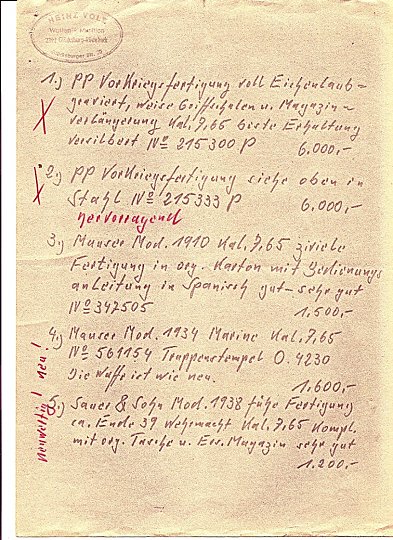 HEINZ VOLZ
1.) PP Vorkriegsfertigung voll Eichenlaub-
graviert, weise Griffschalen u. Magazin-
verlängerung Kal. 7,65 beste Erhaltung
versilbert № 215300 P 6.000,-
2.) PP Vorkriegsfertigung siehe oben in
Stahl № 215333 P 6.000,-
hervorragend
3.) Mauser Mod. 1910 Kal. 7,65 zivile
Fertigung in org. Karton mit Bedienungs
anleitung in Spanisch gut-sehr gut
№ 347505 1.500,-
4.) Mauser Mod. 1934 Marine Kal. 7,65
№ 561154 Truppenstempel O. 4230
Die Waffe ist wie neu. 1.600,-
neuwertig! neu!
5.) Sauer & Sohn Mod. 1938 fühe Fertigung
ca. Ende 39 Wehrmacht Kal. 7,65 kompl.
mit org. Tasche u. Ers. Magazin sehr gut
1.200,-